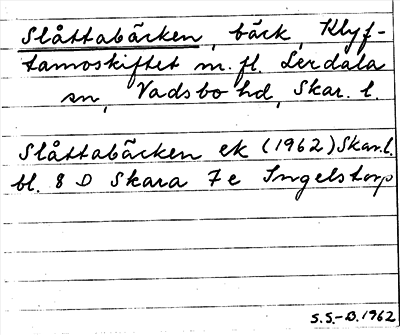 Slåttabäcken, bäck, Klyf-
tamoskiftet m.fl. Lerdala
sn, Vadsbo hd, Skar. l.
Slåttabäcken ek (1962) Skar.l.
bl. 8 D Skara 7 e Ingelstorp
S.S.-B.1962